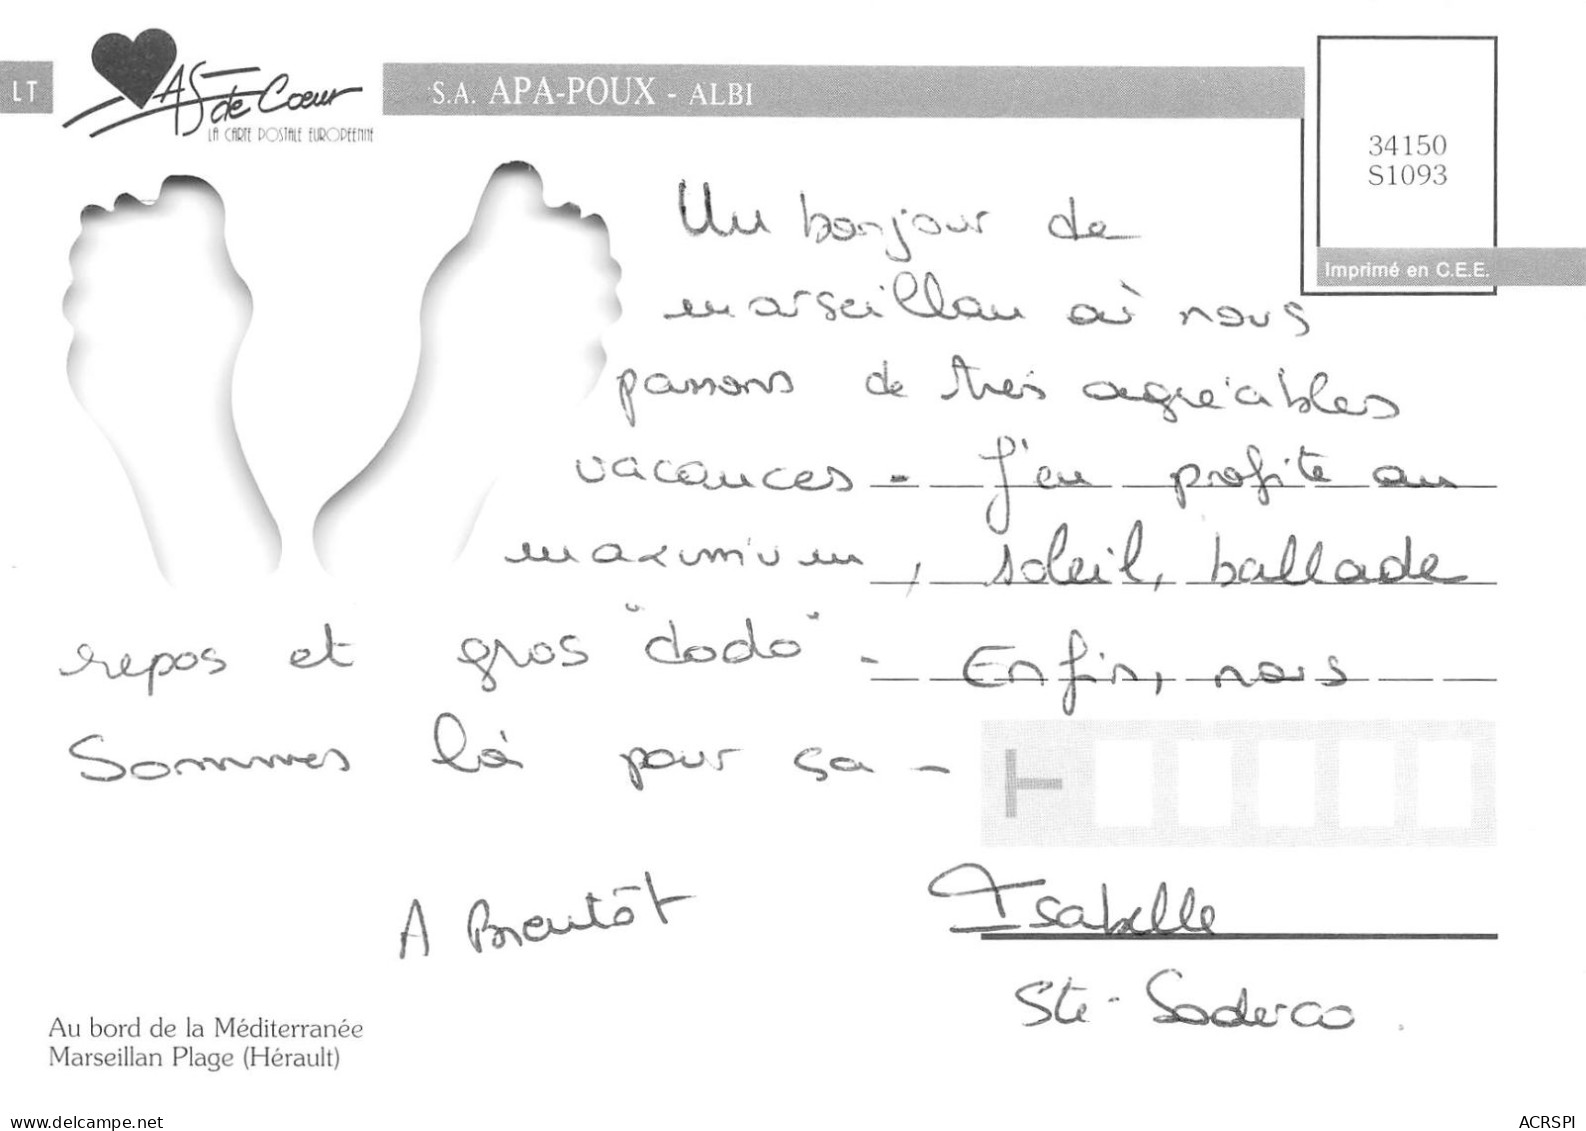 LT
As de Coeur
LA CARTE POSTALE EUROPÉENNE
S.A. APA-POUX - ALBI
34150
S1093
Imprimé en C.E.E.
Un bonjour de
marseillan où nous
passons de très agréables
vacances - J'en profite au
maximum, soleil, ballade
repos et gros "dodo" - Enfin, nous
Sommes là pour sa -
A Bientôt
Isabelle
Sté - Soderco.
Au bord de la Méditerranée
Marseillan Plage (Hérault)
www.delcampe.net
ACRSPI